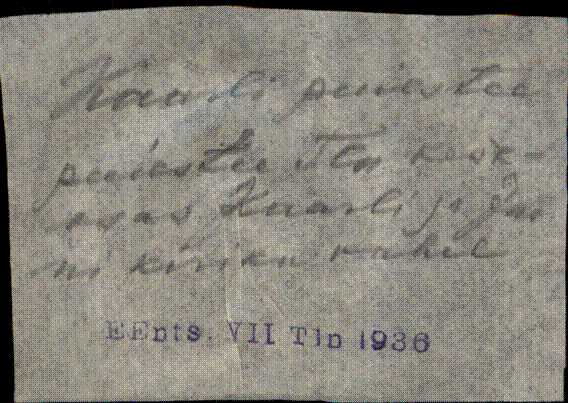 Kaarli puiestee
puiestee Tln kesk-
osas Kaarli ja Jaa
ni kiriku vahel
EEpts. VII Tln 1936